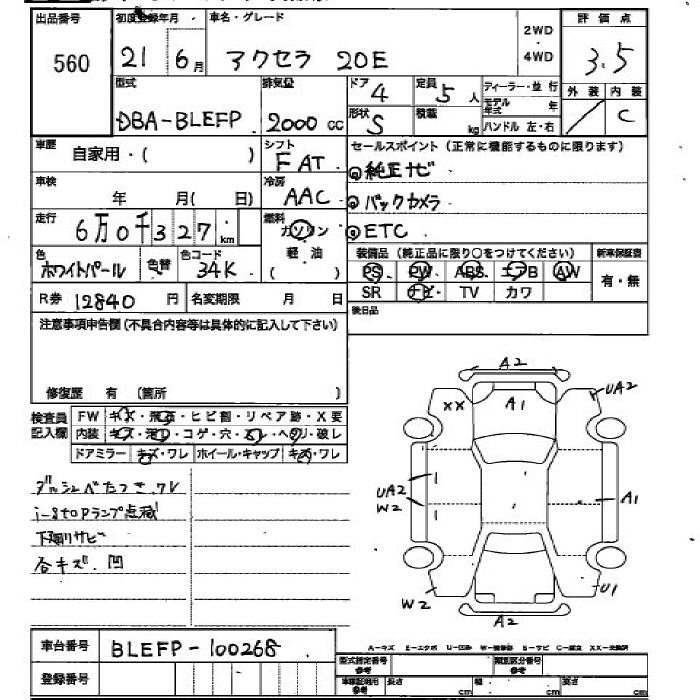 出品番号 初度登録年月 車名・グレード 2WD ・ 4WD 評価点
560 21 6月 アクセラ 20E 3.5
型式 排気量 ドア 定員 ディーラー・並行 外装 内装
DBA-BLEFP 2000cc 4 5人 モデル年式 年
形状 積載 ハンドル 左・右
S kg / C
車歴 シフト セールスポイント(正常に機能するものに限ります)
自家用・( ) FAT 純正ナビ
車検 冷房
年 月( 日) AAC バックカメラ
走行 燃料
6万0千327km ガソリン ETC
軽油
( )
色 色替 色コード 装備品(純正品に限り○をつけてください) 新車保証書
ホワイトパール 34K PS PW ABS エアB AW 有・無
R券 12840円 名変期限 月 日 SR ナビ TV カワ
注意事項申告欄(不具合内容等は具体的に記入して下さい) 後日品
修復歴 有(箇所 )
検査員記入欄 FW キズ・飛石・ヒビ割・リペア跡・X要
内装 キズ・汚レ・コゲ・穴・スレ・ヘタリ・破レ
ドアミラー キズ・ワレ ホイール・キャップ キズ・ワレ
ダッシュべたつき.ワレ
i-stopランプ点滅
下廻りサビ
各キズ.凹
A2
XX A1 UA2
UA2
W2 A1
W2 U1
A2
車台番号 BLEFP-100268
A-キズ E-エクボ U-凹み W-補修跡 S-サビ C-腐食 XX-交換済
登録番号 型式指定番号 参考 類別区分番号 参考
車庫証明用 参考 長さ cm 幅 cm 高さ cm